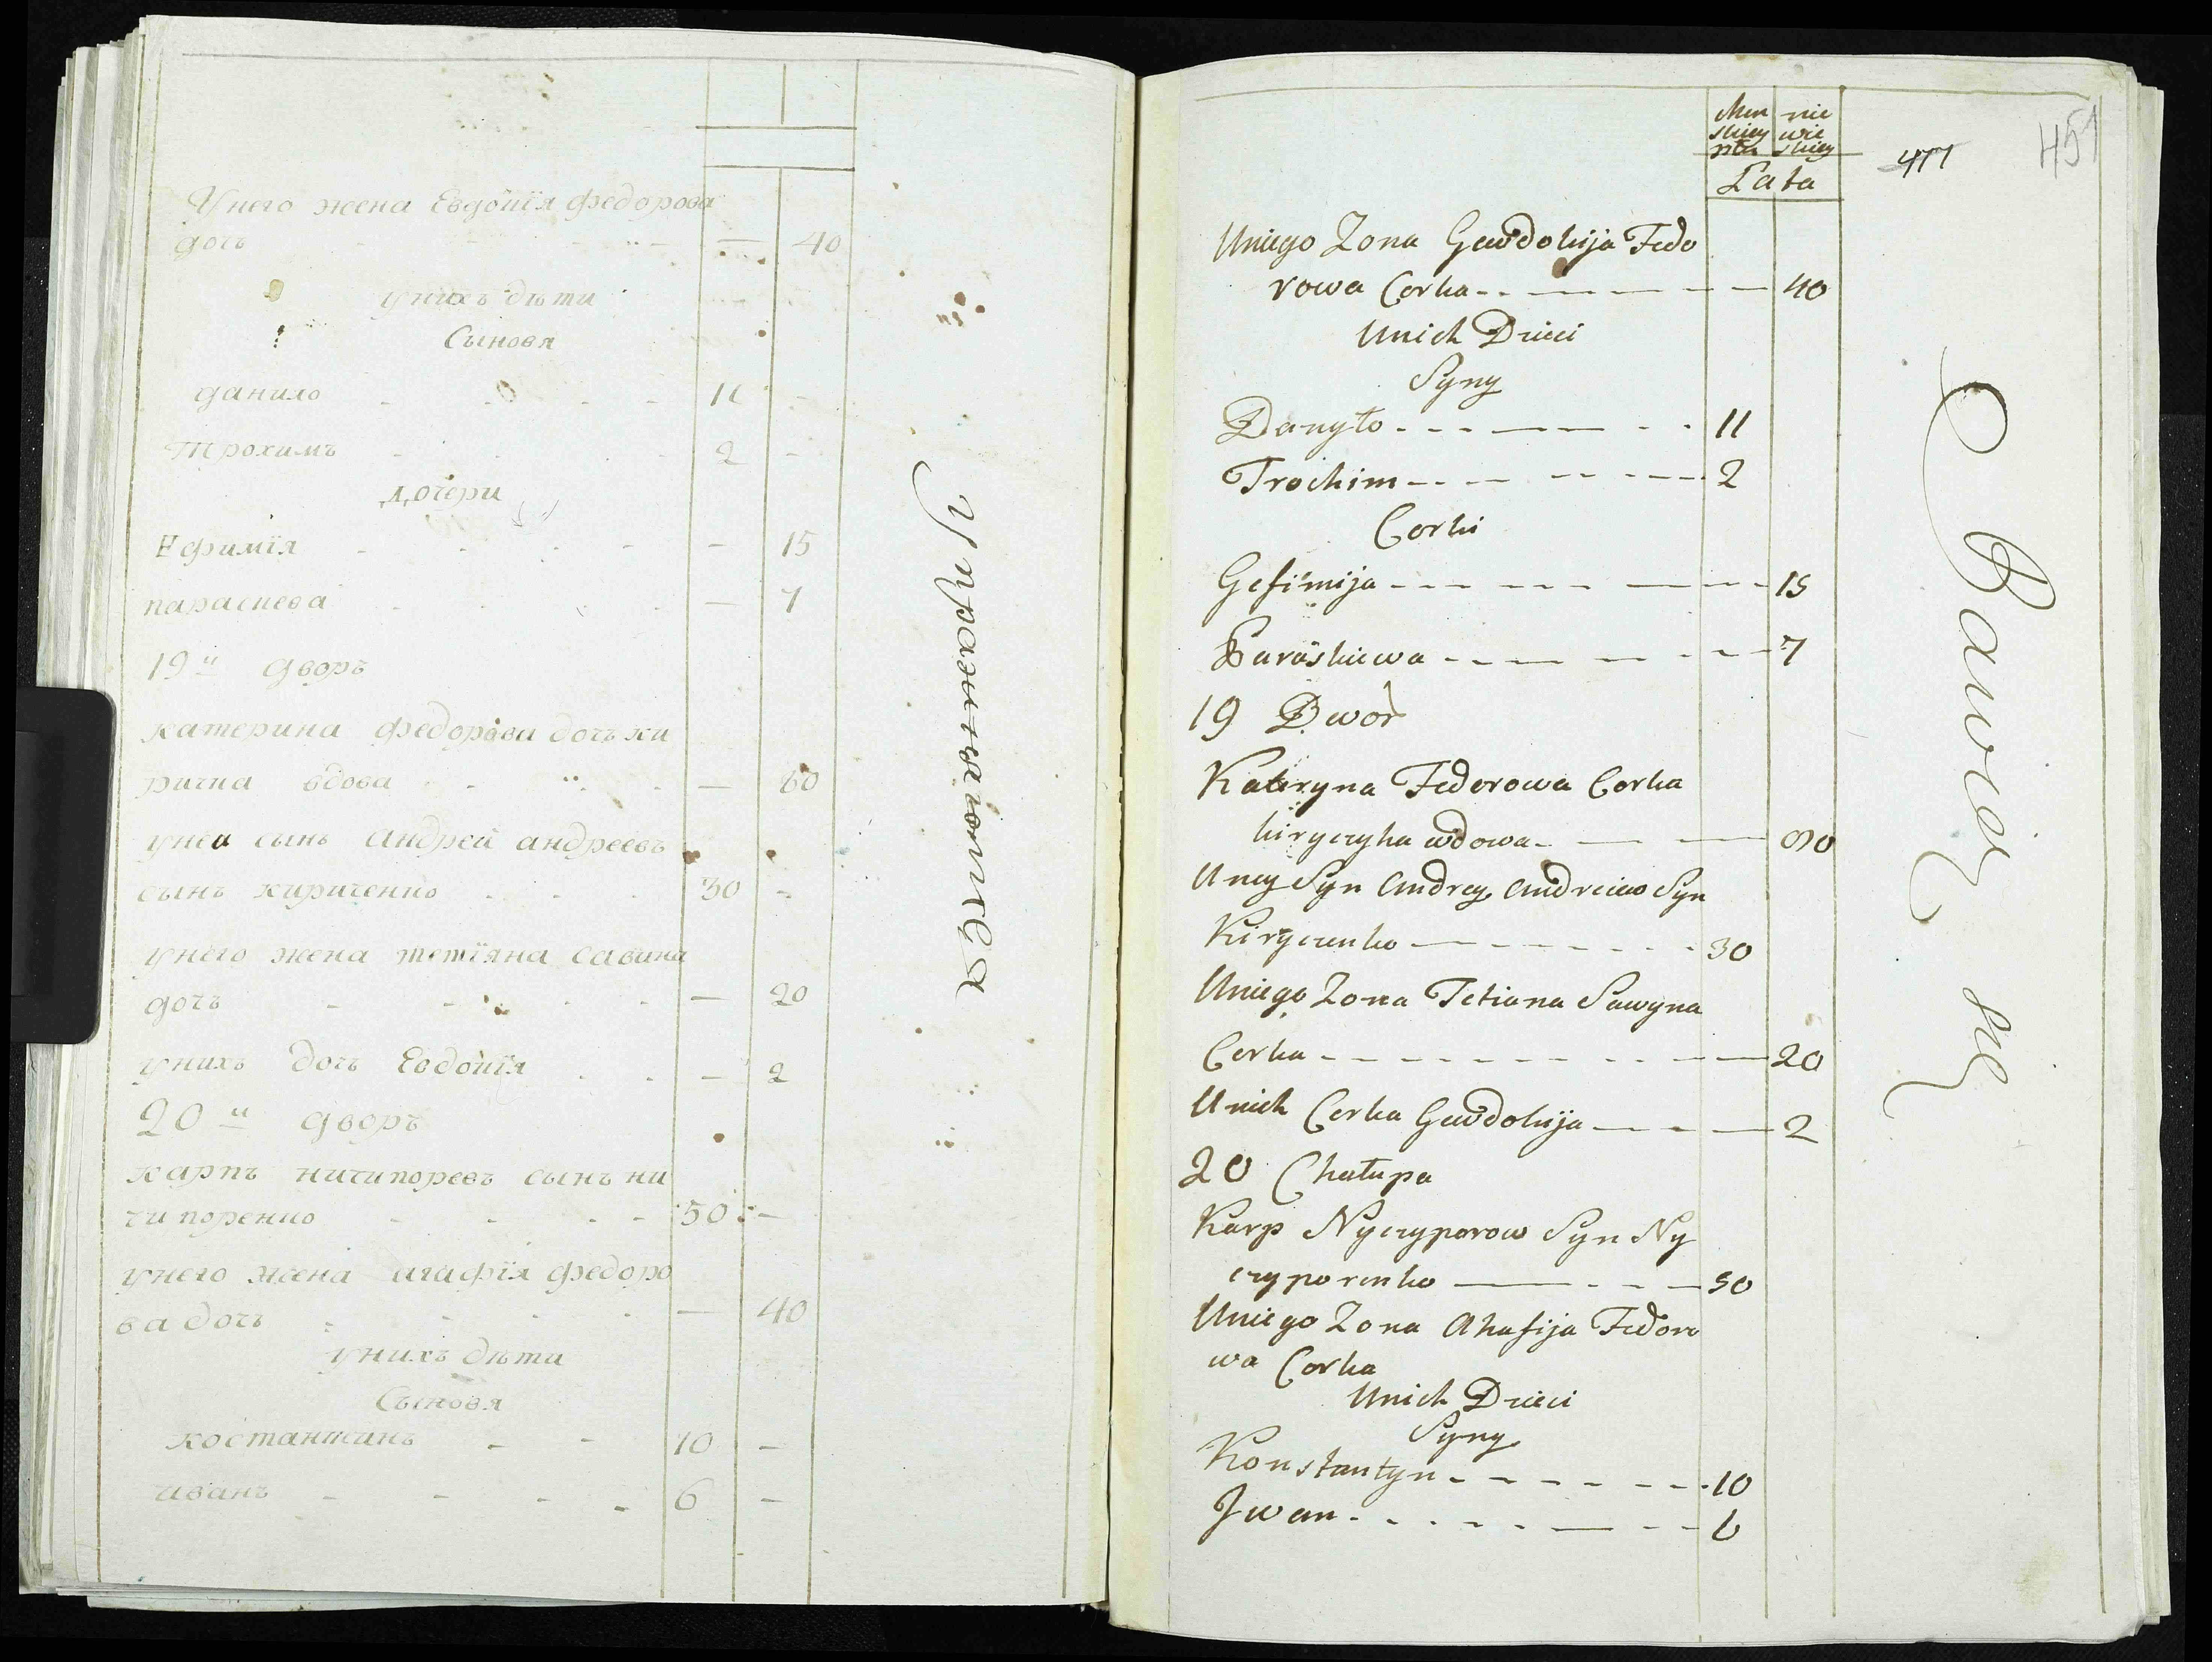 Унего жена Евдокїя федорова
дочь — 40
унихъ дѣти
Сыновя
данило 11 -
Трохимъ 2 -
дочери
Ефимїя — 15
параскева — 7
19й дворъ
катерина федорова дочь ки
рична вдова — 60
унеа сынъ андрей андреевъ
сынъ кириченко 30 -
унего жена тетїяна савина
дочь — 20
унихъ дочь Евдокїя — 2
20й дворъ
карпъ ничипоревъ сынъ ни
чипоренко 50 -
унего жена агафїя федоро
ва дочь — 40
унихъ дѣти
Сыновя
костантинъ 10 -
иванъ 6 -
Упражнятотся
Men nie
skiey wie
płci skiey
Lata
477
451
Uniego Zona Gewdokija Fedo
rowa Corka 40
Unich Dzieci
Syny
Danyło 11
Trochim 2
Corki
Gefimija 15
Paraskiewa 7
19 Dwor
Kateryna Fedorowa Corka
kiryczyha wdowa 60
Uney Syn Andrey Andreiew Syn
Kiryczenko 30
Uniego Zona Tetiana Sawyna
Corka 20
Unich Corka Gewdokija 2
20 Chałupa
Karp Nyczyporow Syn Ny
czyporenko 50
Uniego Zona Ahafija Fedoro
wa Corka
Unich Dzieci
Syny
Konstantyn 10
Jwan 6
Bawią się